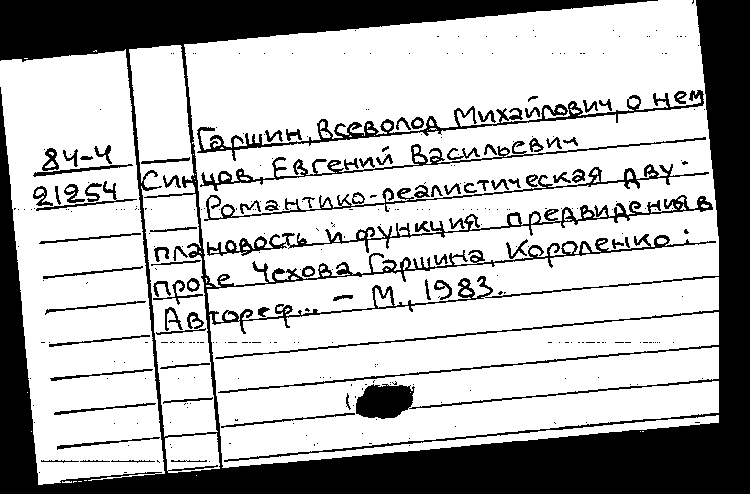 Гаршин, Всеволод Михайлович, о нем
84-4
21254
Синцов, Евгений Васильевич
Романтико-реалистическая дву-
плановость и функция предвидения в
прозе Чехова, Гаршина, Короленко:
Автореф... - М., 1983.